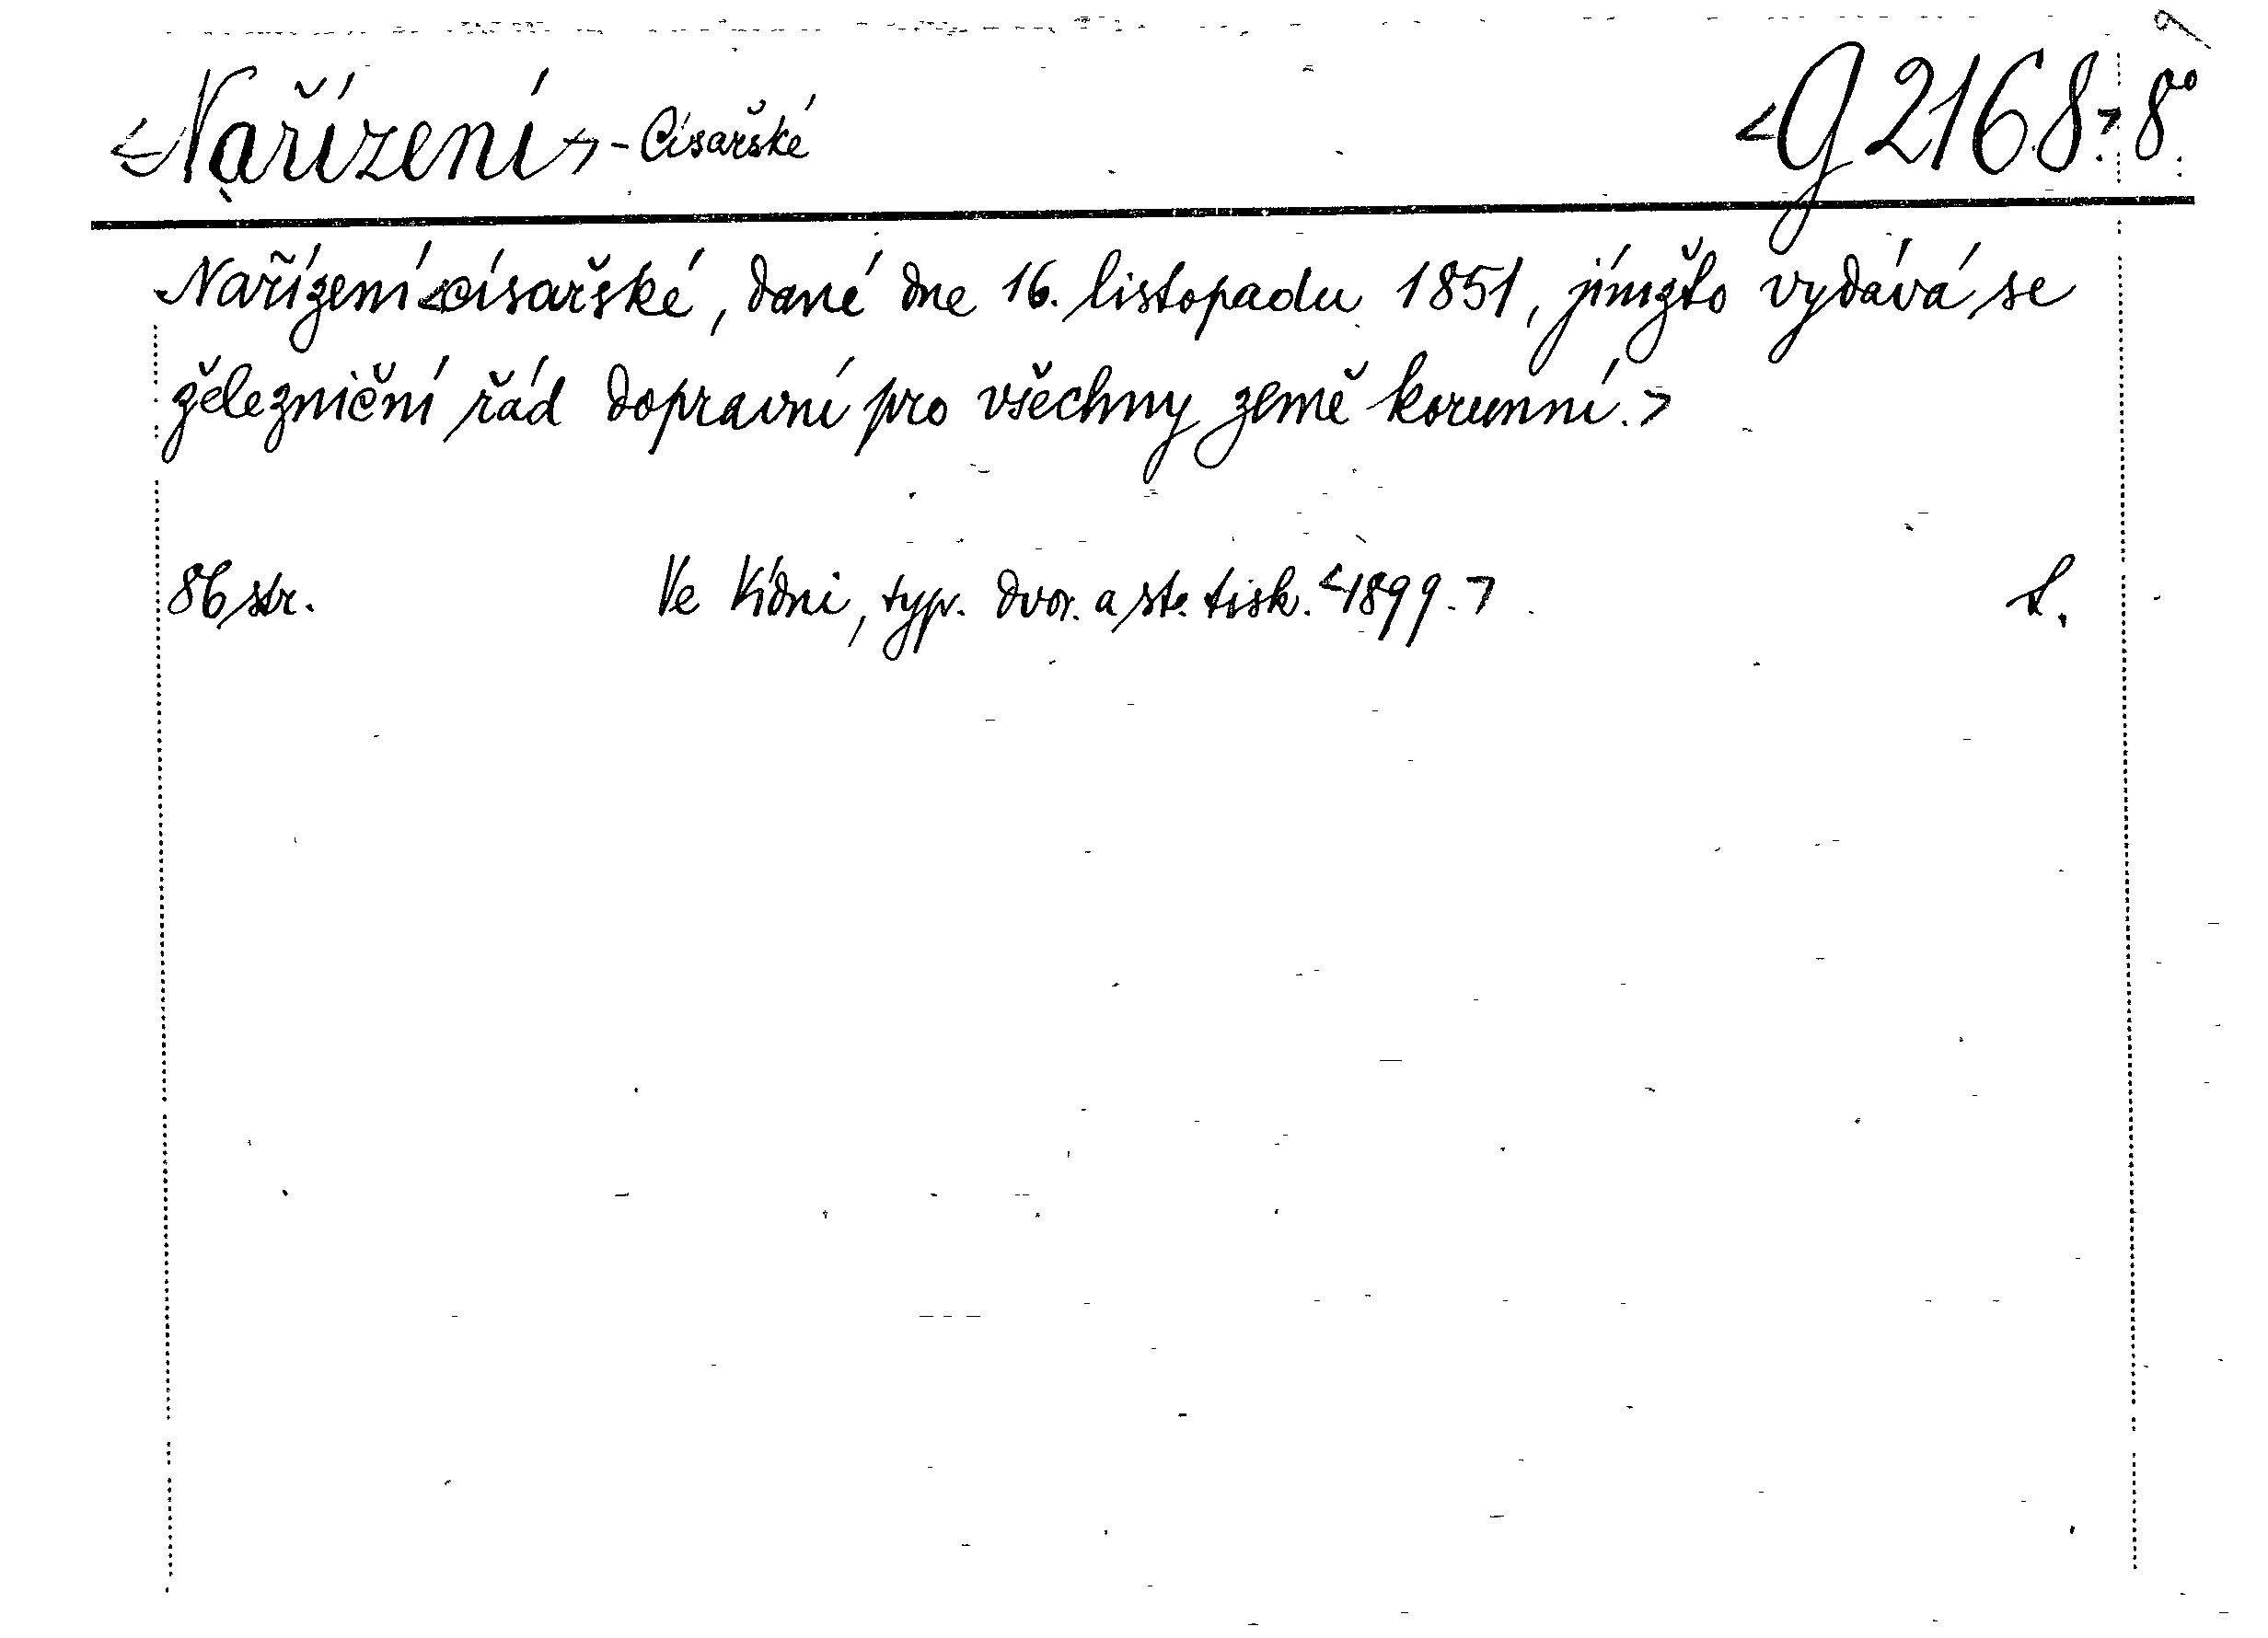 <Nařízení> - Císařské <G 2168> 8°
Nařízení <císařské, dané dne 16. listopadu 1851, jímžto vydává se
železniční řád dopravní pro všechny země korunní.>
86 str. Ve Vídni, typ. dvor. a st. tisk. <1899.>